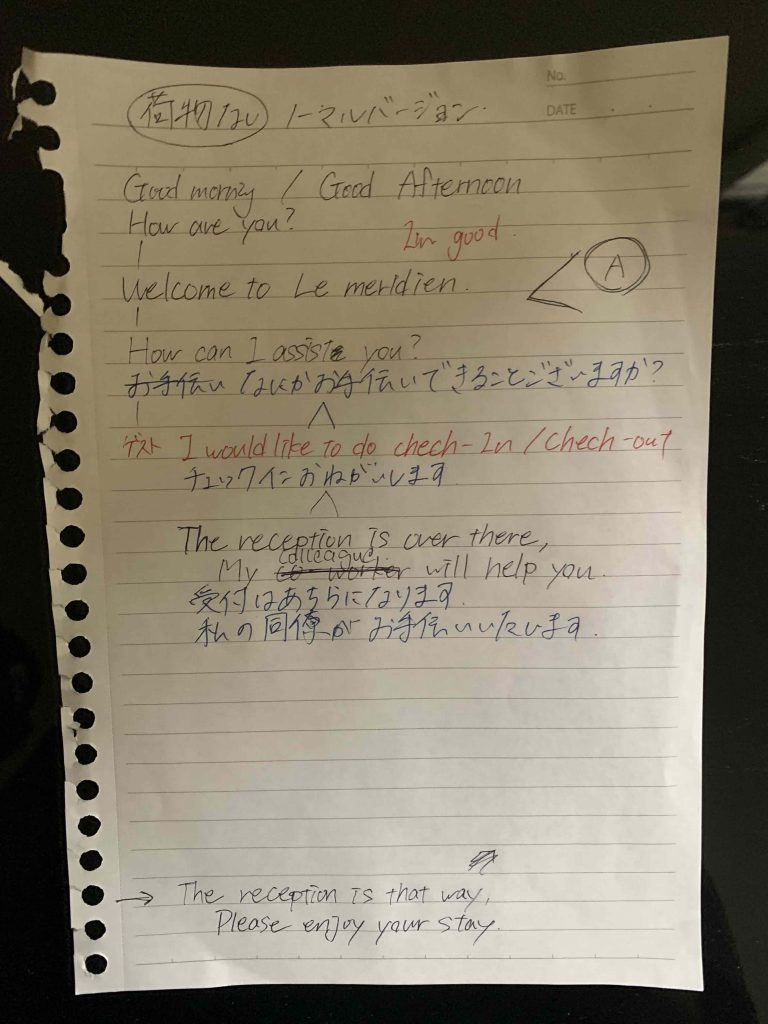 No.
DATE
荷物ない ノーマルバージョン.
Good morning / Good Afternoon
How are you?
Im good.
A
Welcome to Le meridien.
How can I assist you?
お手伝い なにかお手伝いできることございますか?
ゲスト I would like to do chech-In / chech-out
チェックインおねがいします
The reception is over there,
colleague
My co-worker will help you.
受付はあちらになります.
私の同僚がお手伝いいたします.
→ The reception is that way,
Please enjoy your stay.